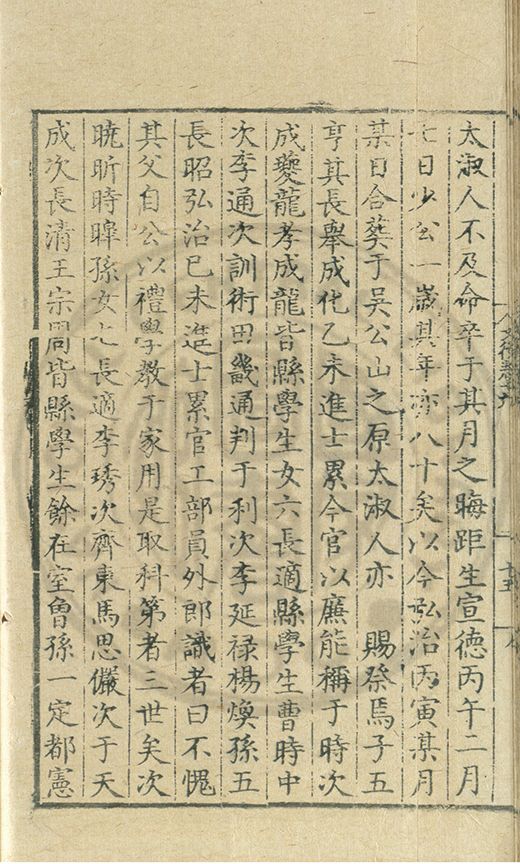 太淑人不及命卒于其月之晦距生宣德丙午二月
七日少公一歲其年亦八十矣以今弘治丙寅某月
某日合葬于吴公山之原太淑人亦　賜祭焉子五
亨其長舉成化乙未進士累今官以廉能稱于時次
成夔龍孝成龍皆縣學生女六長適縣學生曹時中
次李通次訓術田畿通判于利次李延禄楊煥孫五
長昭弘治已未進士累官工部員外郎識者曰不愧
其父自公以禮學教于家用是取科第者三世矣次
曉昕時暐孫女七長適李琇次齊東馬思儼次于天
成次長清王宗周皆縣學生餘在室曾孫一定都憲